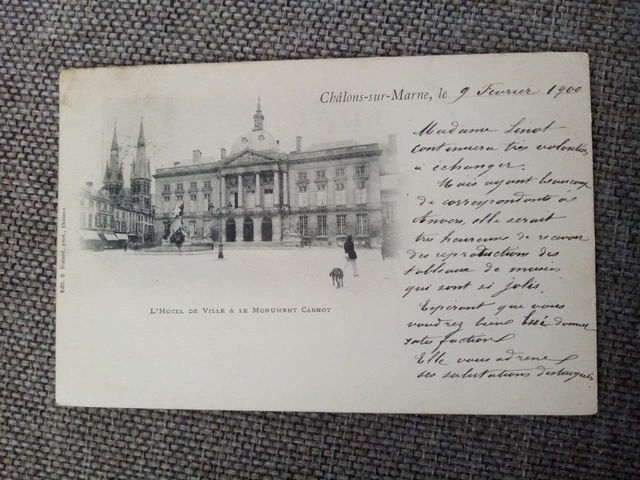 Châlons-sur-Marne, le 9 Fevrier 1900
Madame Linot
continuera très volontiers
à échanger.
Mais ayant beaucoup
de correspondants à
Anvers, elle serait
très heureuse de recevoir
des reproductions des
tableaux de musées
qui sont si jolis.
Espérant que vous
voudrez bien donner
satisfaction
Elle vous adresse
ses salutations distinguées
L'Hotel de Ville & le Monument Carnot
Edit. G. Durand, phot., Châlons